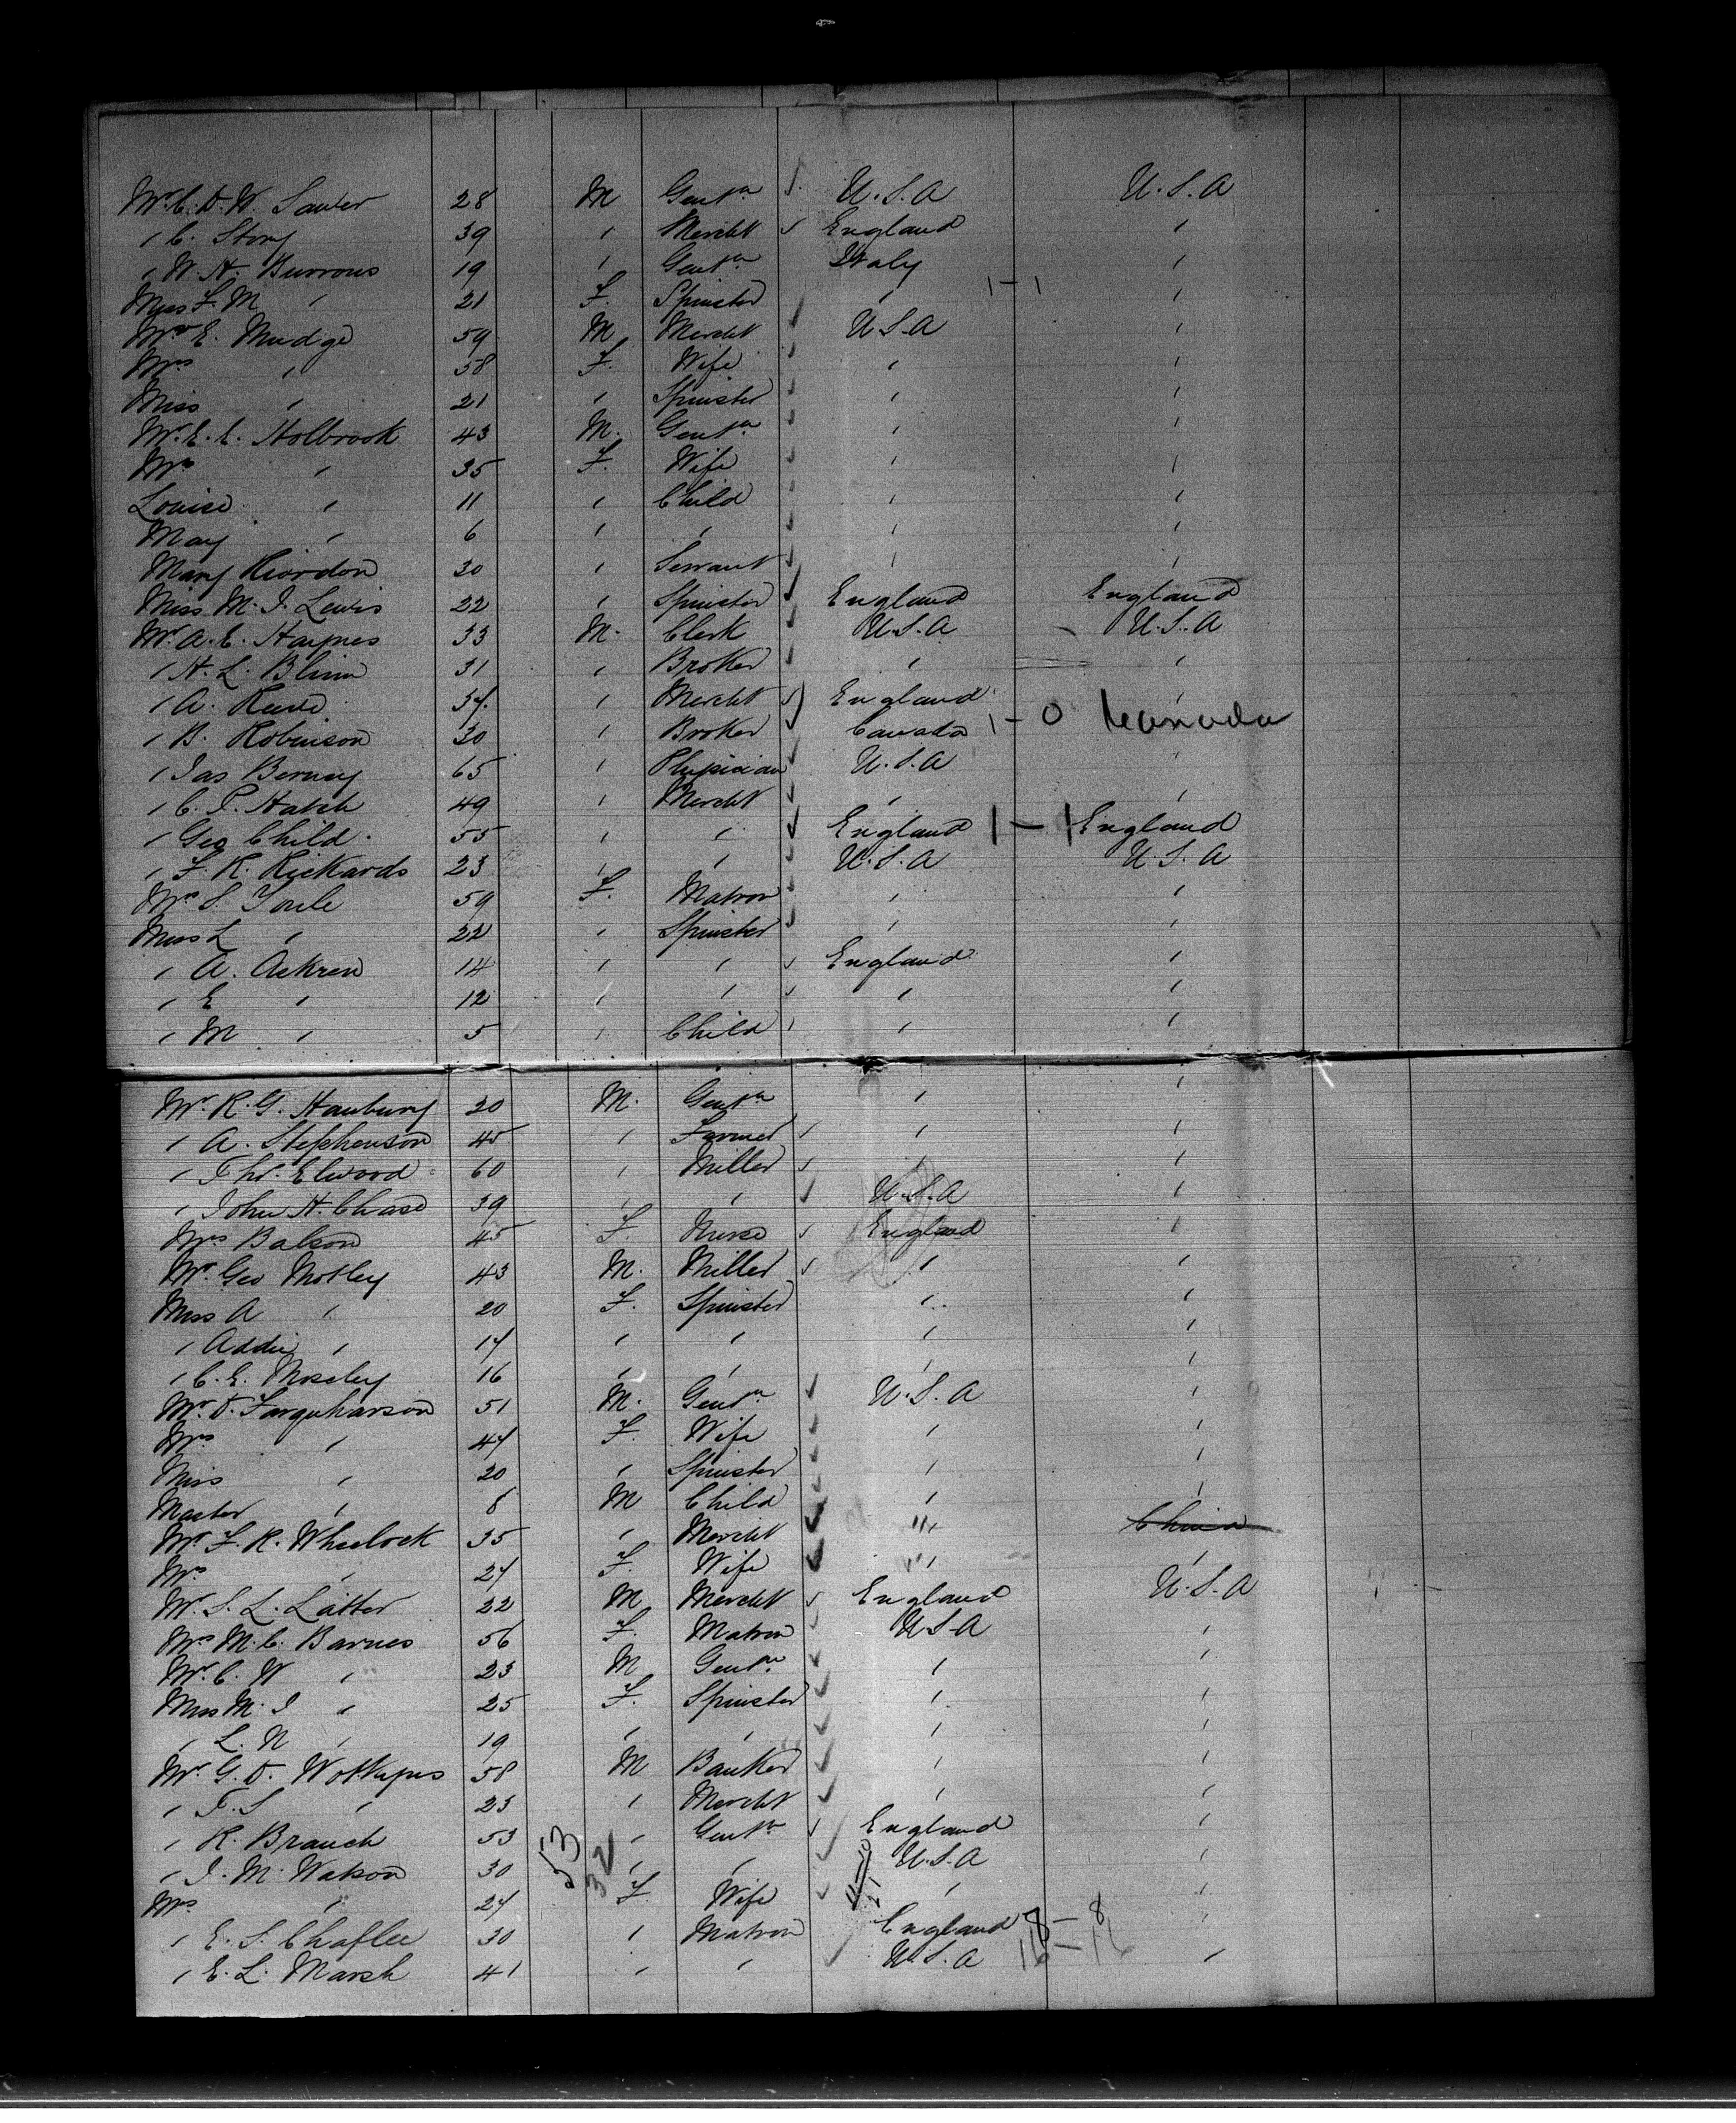 Mr. C. D. W. 28 M Gentn U.S.A U.S.A
" C. Story 39 " Mercht England "
" W. H. Burrows 19 " Gentn Italy "
Miss F. M " 21 F. Spinster " 1-1 "
Mr E. Mudge 59 M Mercht U.S.A "
Mrs " 58 F. Wife " "
Miss " 21 " Spinster " "
Mr. E. E. Holbrook 43 M. Gentn " "
Mrs " 35 F. Wife " "
Louise " 11 " Child " "
May " 6 " " " "
Mary Riordon 30 " Servant " "
Miss M. J. Lewis 22 " Spinster England England
Mr. A. E. Haynes 33 M. Clerk U.S.A U.S.A
" H. L. Blinn 31 " Broker " "
" A. 34 " Mercht England "
" B. Robinson 30 " Broker Canada 1-0 Canada
" Jas 65 " Physician U.S.A "
" C. F. Hatch 49 " Mercht " "
" Geo Child 55 " " England 1-1 England
" F. R. Rickards 23 " " U.S.A U.S.A
Mrs S. 59 F. Matron " "
Miss L " 22 " Spinster " "
" A. 14 " " England "
" E " 12 " " " "
" M " 5 " Child " "
Mr. R. G. Hanbury 20 M. Gentn " "
" A. Stephenson 45 " Farmer " "
" Thr. Elwood 60 " Miller " "
" John H. Chase 39 " " U.S.A "
Mrs Balson 45 F. Nurse England "
Mr. Geo Motley 43 M. Miller " "
Miss A " 20 F. Spinster " "
" Addie " 17 " " " "
" C. E. Moseley 16 " " " "
Mr. D. Farquharson 51 M. Gentn U.S.A "
Mrs " 47 F. Wife " "
Miss " 20 " Spinster " "
Master " 8 M Child " "
Mr. F. R. Wheelock 35 " Mercht " China
Mrs " 27 F. Wife " "
Mr. S. L. Latter 22 M Mercht England U.S.A
Mrs M. C. Barnes 56 F. Matron U.S.A "
Mr. C. W " 23 M Gentn " "
Miss M. J " 25 F. Spinster " "
" L. N " 19 " " " "
Mr. G. D. 58 M Banker " "
" T. S " 23 " Mercht " "
" R. Branch 53 " Gentn England "
" J. M. Watson 30 53 32 " " U.S.A "
Mrs " 27 F. Wife " "
" E. S. Chaflee 30 " Matron England 8-8 "
" E. L. Marsh 41 " " U.S.A 16-16 "